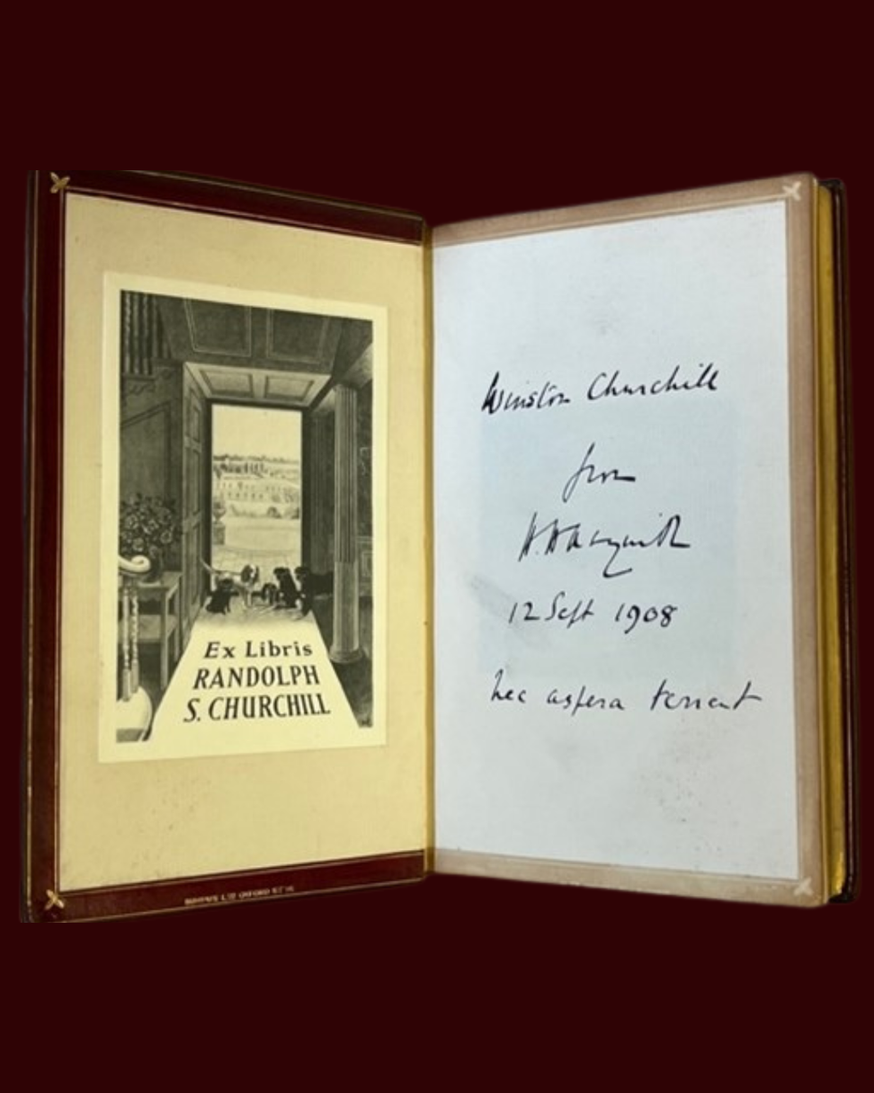 Ex Libris
RANDOLPH
S. CHURCHILL
Winston Churchill
from
H. H. Asquith
12 Sept 1908
nec aspera terrent